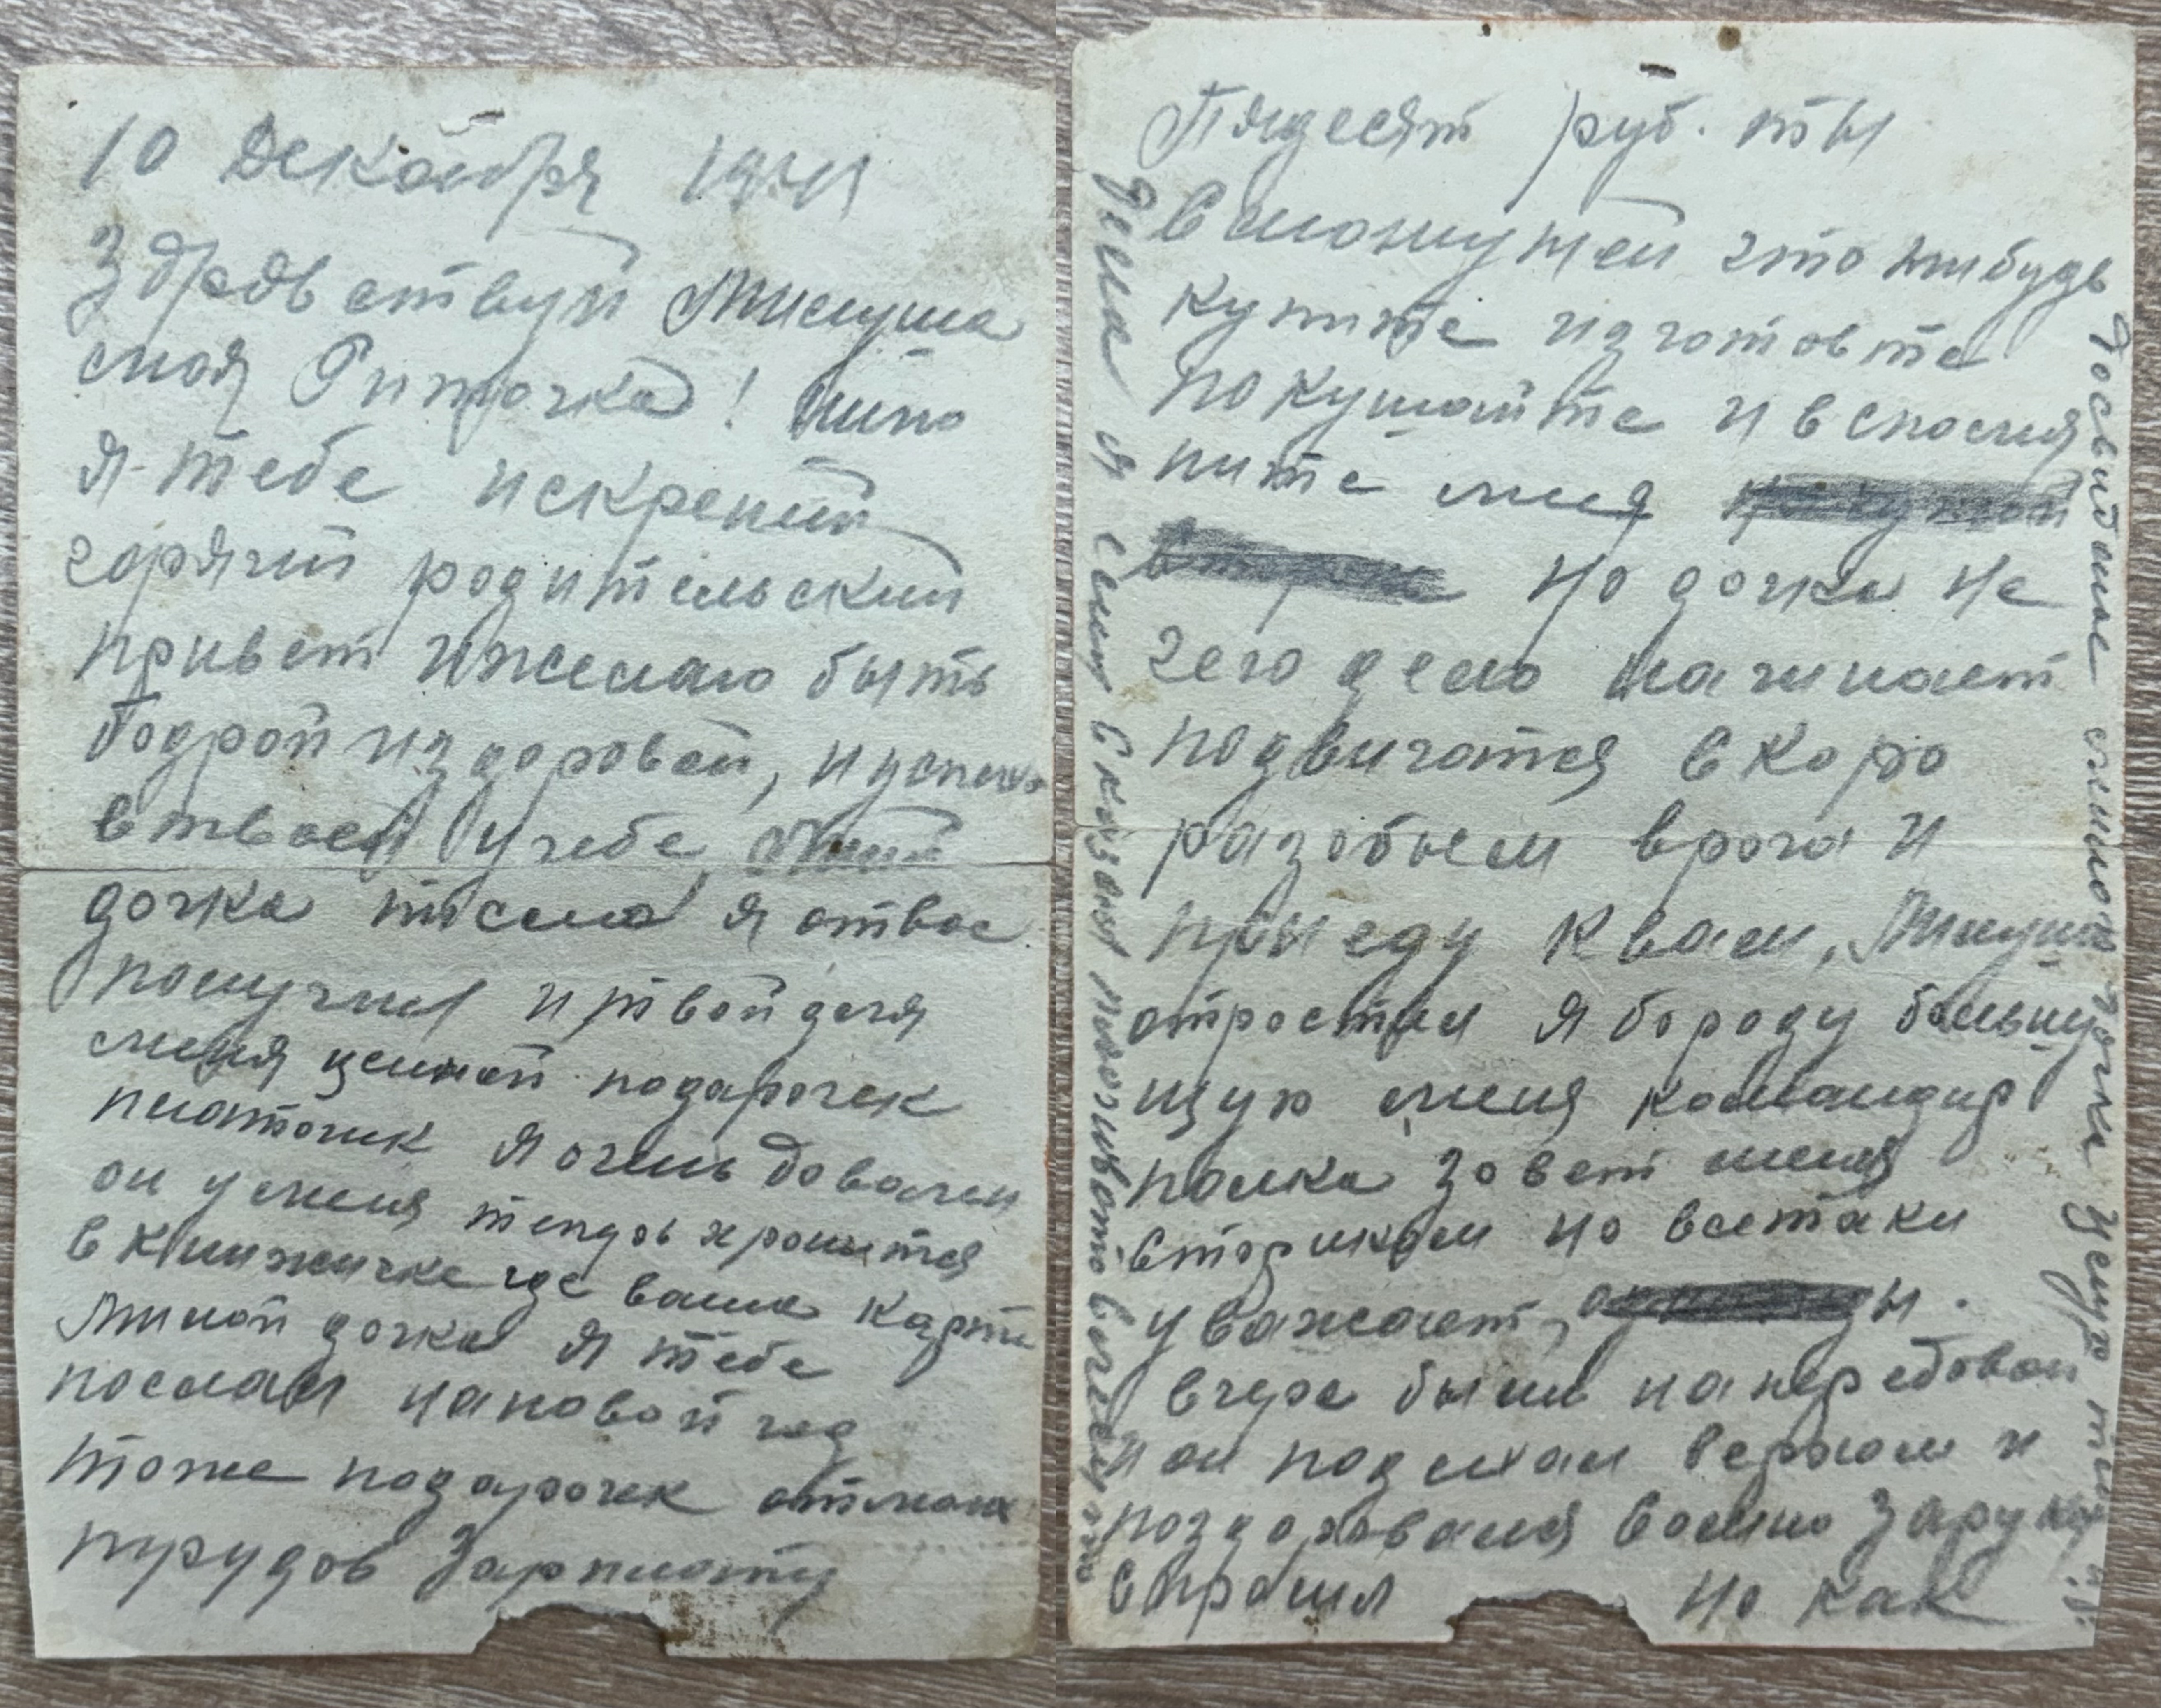 10 Декабря 1941
Здравствуй Милуша
моя Риточка! Шлю
я тебе искрений
горячий родительский
привет и желаю быть
бодрой и здоровой, и успеха
в твоей учебе,
дочка писмо я от вас
получил и твой для
меня ценной подарочек
платочик я очень доволен
он у меня тепрь хронится
в книжичке где ваша карти
Милой дочка я тебе
послал на новой год
тоже подарочек от моих
трудов Зарплату
Пядесят руб. ты
с мамучкой что нибудь
купите изготовте
покушайте и вспомя
ните меня
но дочка не
чего дело начинает
подвигатся скоро
разобьем врага и
приеду к вам, Милуша
отростил я бороду большу
щую меня командир
полка зовет меня
стариком но все таки
уважают,
вчера были на передовой
он подъехал верхом и
поздоровался со мною за руку
спросил но как
дела я ему сказал поколачивать
Досвидание милой дочка целую тебя